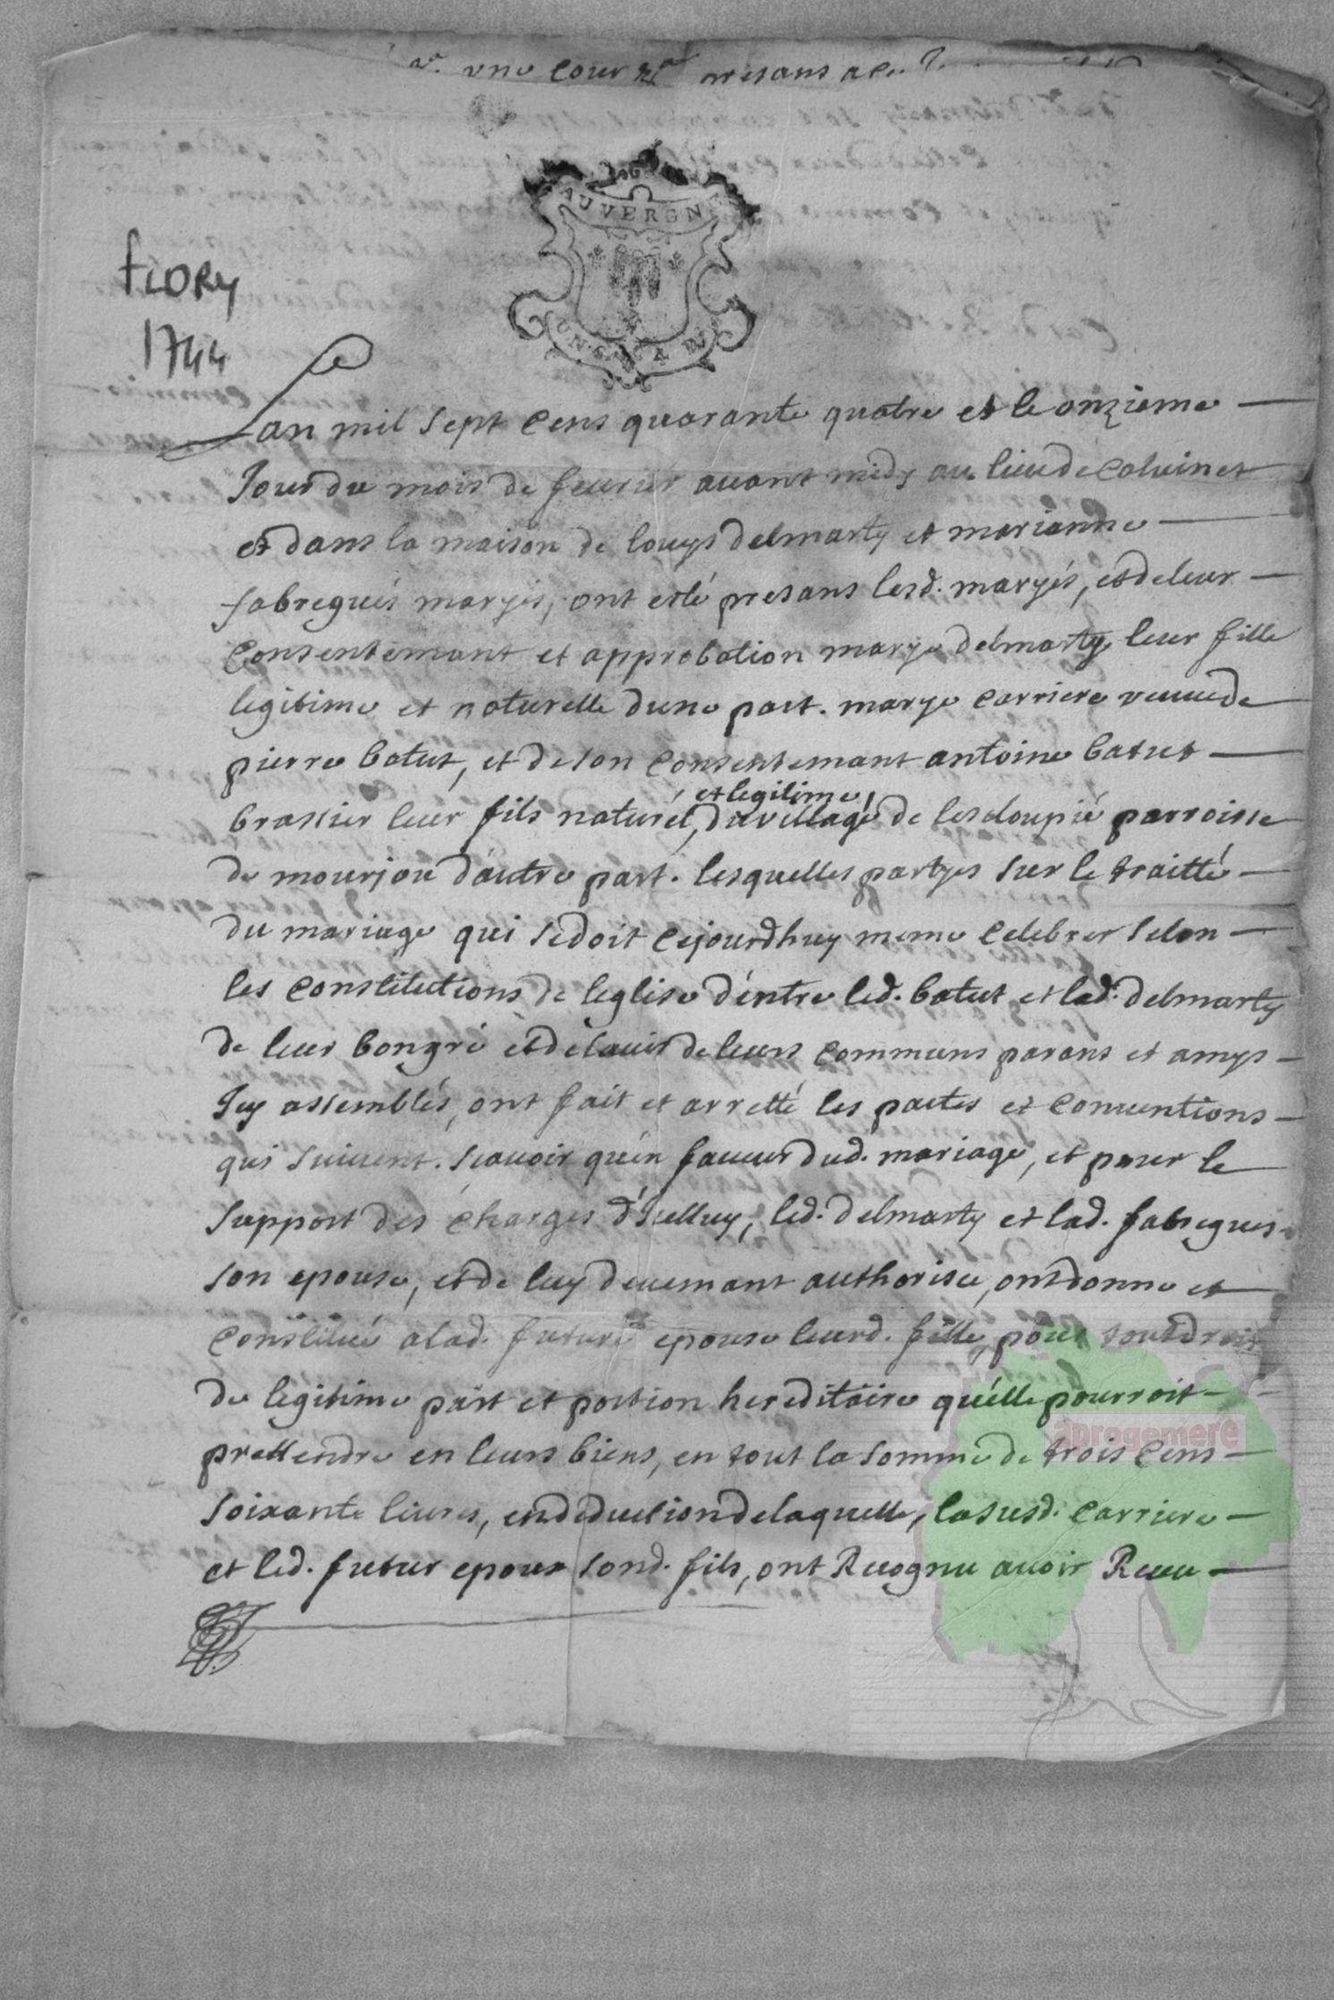 une cour presans
AUVERGN
fLORY
1744
Lan mil sept cens quarante quatre et le onzieme
Jour du mois de feurier auant midy au lieu de Caluinet
et dans la maison de louys delmarty et marianne
fabregués maryés, ont esté presans lesd. maryés, et de leur
Consentemant et approbation marye delmarty leur fille
legitime et naturelle dune part. marye Carriere veuue de
pierre batut, et de son Consentemant antoine batut
et legitime
brassier leur fils naturel, du village de lesdoupié parroisse
de mourjou d'autre part. lesquelles partyes sur le traitté
du mariage qui se doit cejourdhuy meme Celebrer selon
les Constitutions de leglise d'entre led. batut et lad. delmarty
de leur bongré et de lauis de leurs communs parans et amys
Icy assemblés, ont fait et arretté les pactes et Conuentions
qui suiuent. scauoir qu'en faueur dud. mariage, et pour le
Support des charges d'Icelluy, led. delmarty et lad. fabregues
son epouse, et de luy deuemant authorisee, ont donne et
Constitué a lad. future epouse leurd. fille, pour tout droit
de legitime part et portion hereditaire qu'elle pourroit
prettendre en leurs biens, en tout la somme de trois cens
soixante liures, en deduction de laquelle, la susd. Carriere
et led. futur epoux sond. fils, ont Recognu auoir Receu
aprogemere